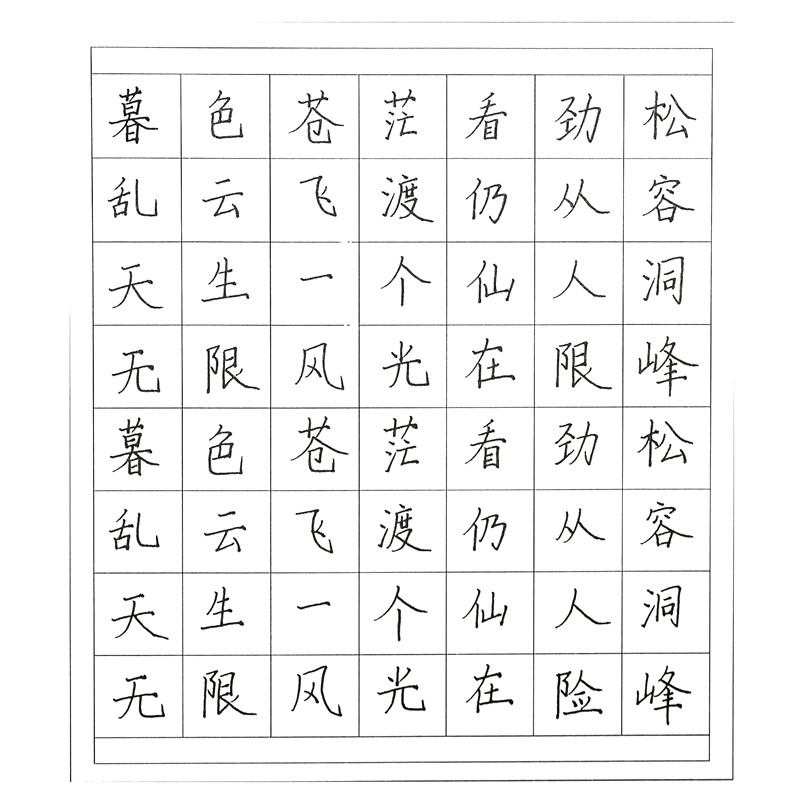 暮色苍茫看劲松
乱云飞渡仍从容
天生一个仙人洞
无限风光在限峰
暮色苍茫看劲松
乱云飞渡仍从容
天生一个仙人洞
无限风光在险峰